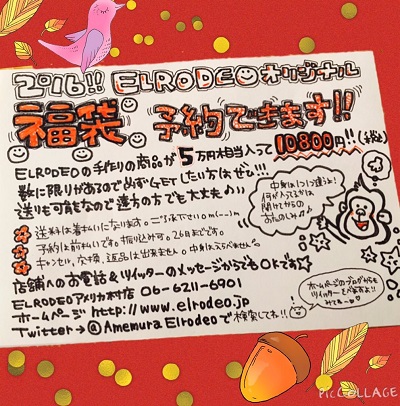 2016!! ELRODEOオリジナル
福袋 予約できます!!
ELRODEOの手作りの商品が5万円相当入って10800円!!(税込)
数に限りがあるので必ずGETしたい方はぜひ!!!
送りも可能なので遠方の方でも大丈夫♪
中身は1つ1つ違うよ!
何が入ってるかは
開けてからの
おたのしみ♪
☆送料は着払いになります。ご了承下さいm(__)m
☆予約は前払いです。振り込み可。26日までです。
☆キャンセル、交換、返品は出来ません。中身はえらべません。
店舗へのお電話&ツイッターのメッセージからでもOKです☆
ELRODEOアメリカ村店 06-6211-6901
ホームページ http://www.elrodeo.jp
Twitter→@Amemura Elrodeoで検索してね!!
ホームページのブログからも
ツイッターとべますよ!!
みてねー
PIC COLLAGE